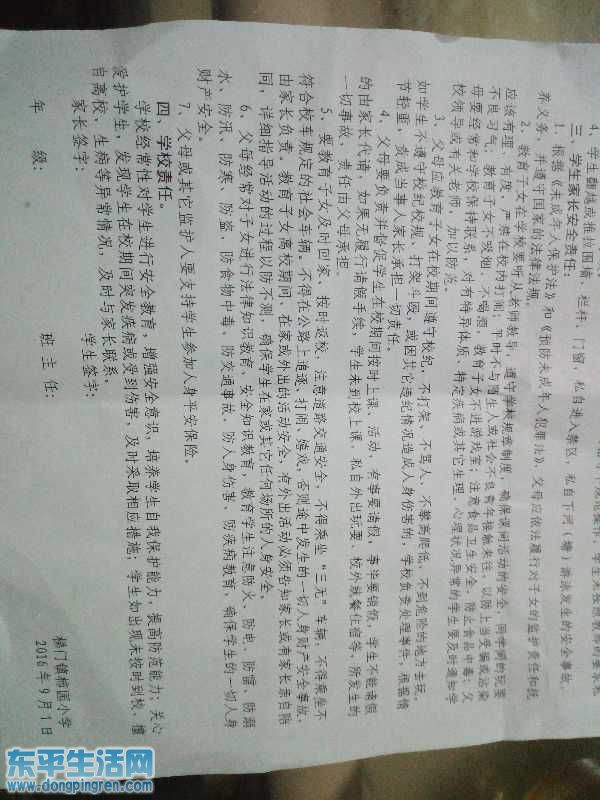 4、学生翻越或推拉围墙、栏杆、门窗，私自进入禁区，私自下河（塘）游泳发生的安全事故。
三、学生家长安全责任：
1、根据《未成年人保护法》和《预防未成年人犯罪法》，父母应依法履行对子女的监护责任和抚
养义务，并遵守国家的法律法规。
2、教育子女在学校要听从老师教导，遵守学校规章制度，确保课间活动的安全，同学间的玩耍
应该有理、有度，严禁在校内打闹；平时不与陌生人或社会不良青年接触来往，以防上当受骗或沾染
不良习气；教育子女不吸烟、不喝酒，教育子女不进游戏室；注意食品卫生安全，防止食品中毒；父
母要经常和学校保持联系，对有特异体质、特定疾病或其它生理、心理状况异常的学生要及时通知学
校领导或有关老师，加以防范。
3、父母应教育子女在校期间遵守校纪，不打架、不骂人、不攀高爬低、不到危险的地方去玩。
如学生不遵守校纪校规、打架斗殴、或因其它违纪情况造成人身伤害的，学校负责处理事件，根据情
节轻重，责成当事人家长承担一切责任。
4、父母要负责并督促学生在校期间按时上课、活动，有事要请假，事毕要销假，学生不能请假
的由家长代请，如果无履行请假手续，学生未到校上课，私自外出玩耍、校外就餐住宿等，所发生的
一切事故，责任由父母承担。
5、要教育子女及时回家、按时返校，注意道路交通安全，不得乘坐“三无”车辆，不得乘坐不
符合校车规定的社会车辆。不得在公路上追逐、打闹、嬉戏，否则途中发生的一切人身财产安全事故，
由家长负责。教育子女离校期间，在家或外出的活动安全，有外出活动必须告知家长或有家长亲自陪
同，详细指导活动的过程以防不测，确保学生在家或其它任何场所的人身安全。
6、父母经常对子女进行法律知识教育、安全知识教育，教育学生注意防火、防电、防雷、防溺
水、防汛、防寒、防盗、防食物中毒、防交通事故、防人身伤害、防疾病教育，确保学生的一切人身
财产安全。
7、父母或其它监护人要支持学生参加人身平安保险。
四、学校责任。
学校经常性对学生进行安全教育，增强安全意识，培养学生自我保护能力，提高防范能力；关心
爱护学生，发现学生在校期间突发疾病或受到伤害，及时采取相应措施；学生如出现未按时到校、擅
自离校、生病等异常情况，及时与家长联系。
家长签字： 学生签字：
年 级： 班 主 任：
梯门镇 小学
2016年9月1日
东平生活网
www.dongpingren.com